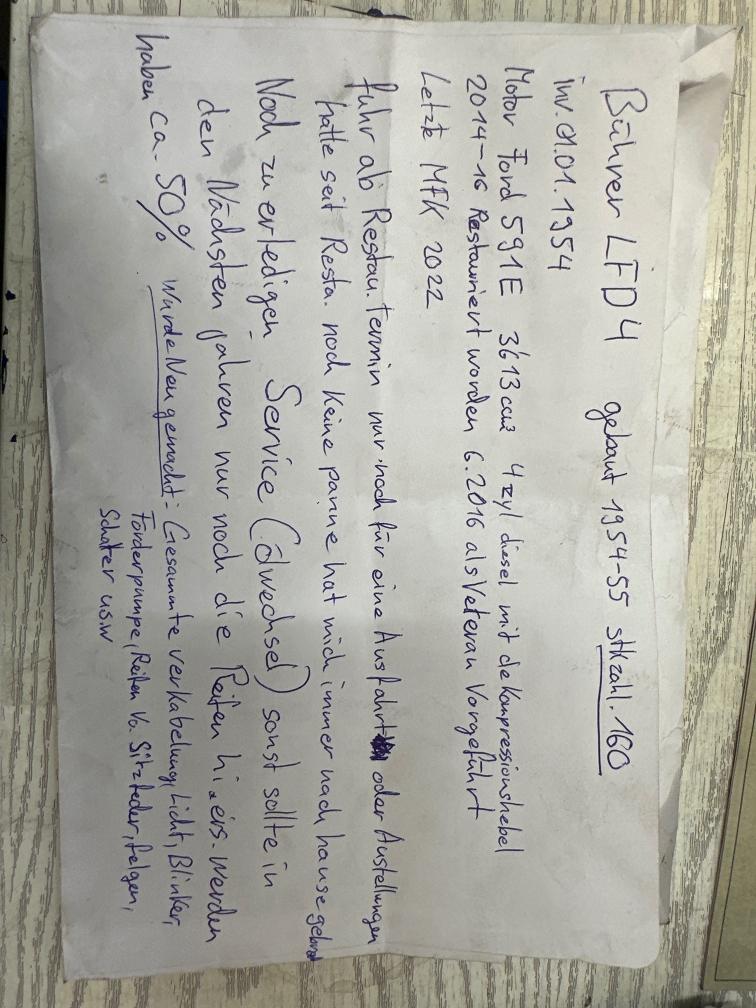 Bührer LFD4 gebaut 1954-55 stkzahl. 160
inv. 01.01.1954
Motor Ford 591E 3613 cm³ 4 zyl diesel mit dekompressionshebel
2014-16 Restauriert worden 6.2016 als Veteran Vorgeführt
Letzte MFK 2022
fuhr ab Restau. termin nur noch für eine Ausfahrt oder Austellungen
hatte seit Resta. noch keine panne hat mich immer nach hause gebracht
Noch zu erledigen Service (ölwechsel) sonst sollte in
den Nächsten jahren nur noch die Reifen hi. ers. werden
haben ca. 50% Wurde Neu gemacht: Gesammte verkabelung, Licht, Blinker,
Förderpumpe, Reifen Vo. Sitz feder, felgen,
Schalter usw